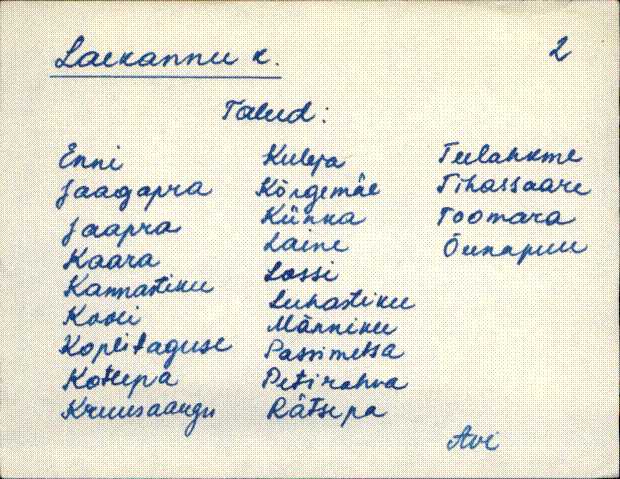 Laekannu k.
2
Talud:
Enni
Jaagapra
Jaapra
Kaara
Kannastiku
Kooli
Koplitaguse
Kotlepa
Kruusaaugu
Kulepa
Kõrgemäe
Künka
Laine
Lossi
Luhastiku
Männiku
Passimetsa
Petirahva
Rätsepa
Teelahkme
Tihassaare
Toomara
Õunapuu
Avi